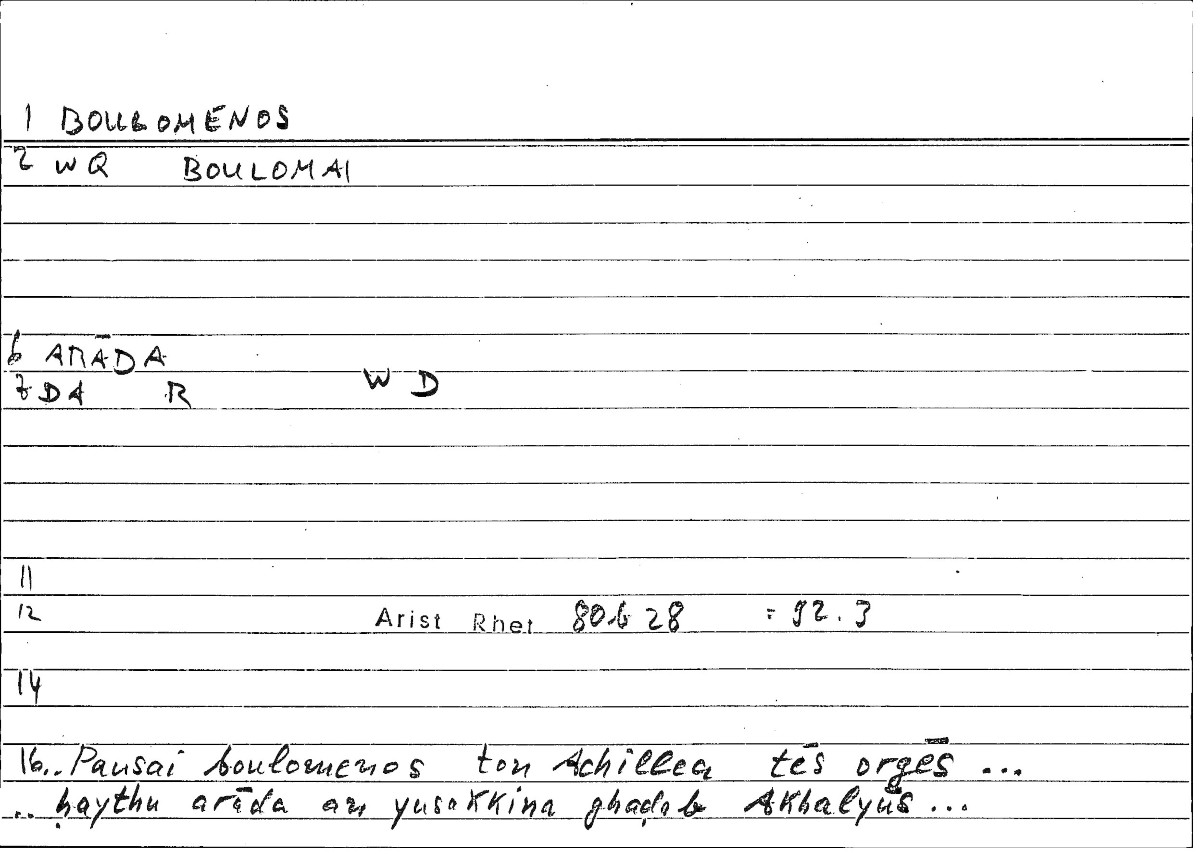 1 BOULOMENOS
2 WQ BOULOMAI
6 ARĀDA
7 DA R W D
11
12 Arist Rhet 80b 28 = 92.3
14
16.. Pausai boulomenos ton Achillea tēs orgēs ...
.. ḥaythu arāda an yusakkina ghaḍab Akhalyūs ...